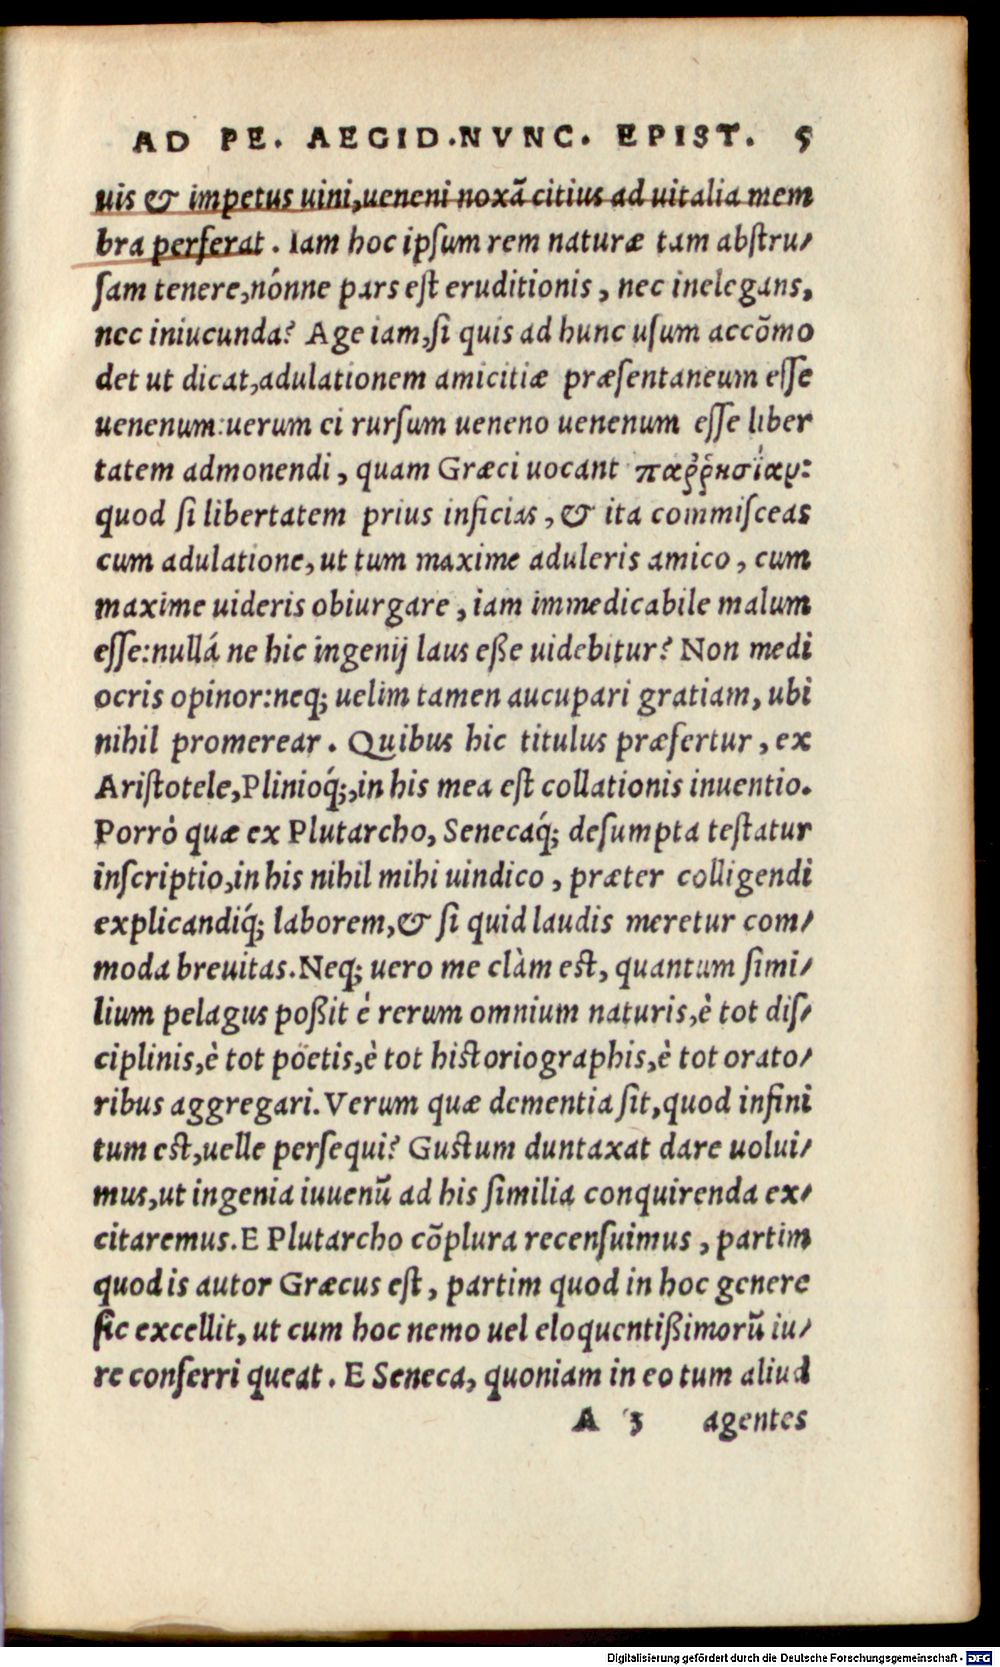 AD PE. AEGID.NVNC. EPIST. 5
uis & impetus uini,ueneni noxã citius ad uitalia mem
bra perferat . Iam hoc ipsum rem naturæ tam abstru/
sam tenere,nónne pars est eruditionis , nec inelegans,
nec iniucunda? Age iam,si quis ad hunc usum accõmo
det ut dicat,adulationem amicitiæ præsentaneum esse
uenenum:uerum ci rursum ueneno uenenum esse liber
tatem admonendi , quam Græci uocant παῤῥησίαν:
quod si libertatem prius inficias , & ita commisceas
cum adulatione, ut tum maxime aduleris amico , cum
maxime uideris obiurgare , iam immedicabile malum
esse:nullá ne hic ingenij laus eße uidebitur? Non medi
ocris opinor:neq; uelim tamen aucupari gratiam, ubi
nihil promerear . Quibus hic titulus præfertur , ex
Aristotele,Plinioq́;,in his mea est collationis inuentio.
Porrò quæ ex Plutarcho, Senecaq́; desumpta testatur
inscriptio,in his nihil mihi uindico , præter colligendi
explicandiq́; laborem,& si quid laudis meretur com/
moda breuitas.Neq; uero me clàm est, quantum simi/
lium pelagus poßit è rerum omnium naturis,è tot dis/
ciplinis,è tot poëtis,è tot historiographis,è tot orato/
ribus aggregari.Verum quæ dementia sit,quod infini
tum est,uelle persequi? Gustum duntaxat dare uolui/
mus,ut ingenia iuuenũ ad his similia conquirenda ex/
citaremus.E Plutarcho cõplura recensuimus , partim
quod is autor Græcus est , partim quod in hoc genere
sic excellit, ut cum hoc nemo uel eloquentißimorũ iu/
re conferri queat . E Seneca, quoniam in eo tum aliud
A 3 agentes
Digitalisierung gefördert durch die Deutsche Forschungsgemeinschaft - DFG